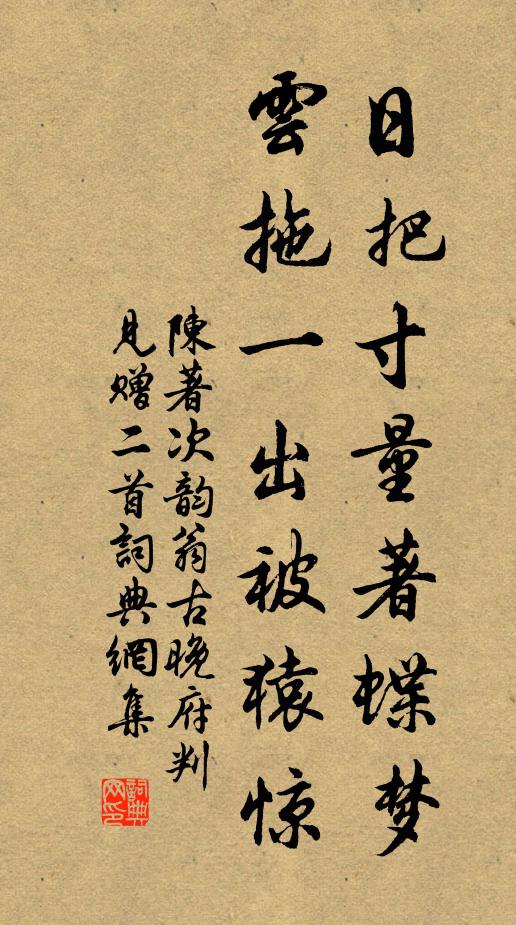 日把寸量著蝶梦
雲拖一出被猿惊
陳著次韵翁古晚府判
見赠二首詞典網集
詞典网印